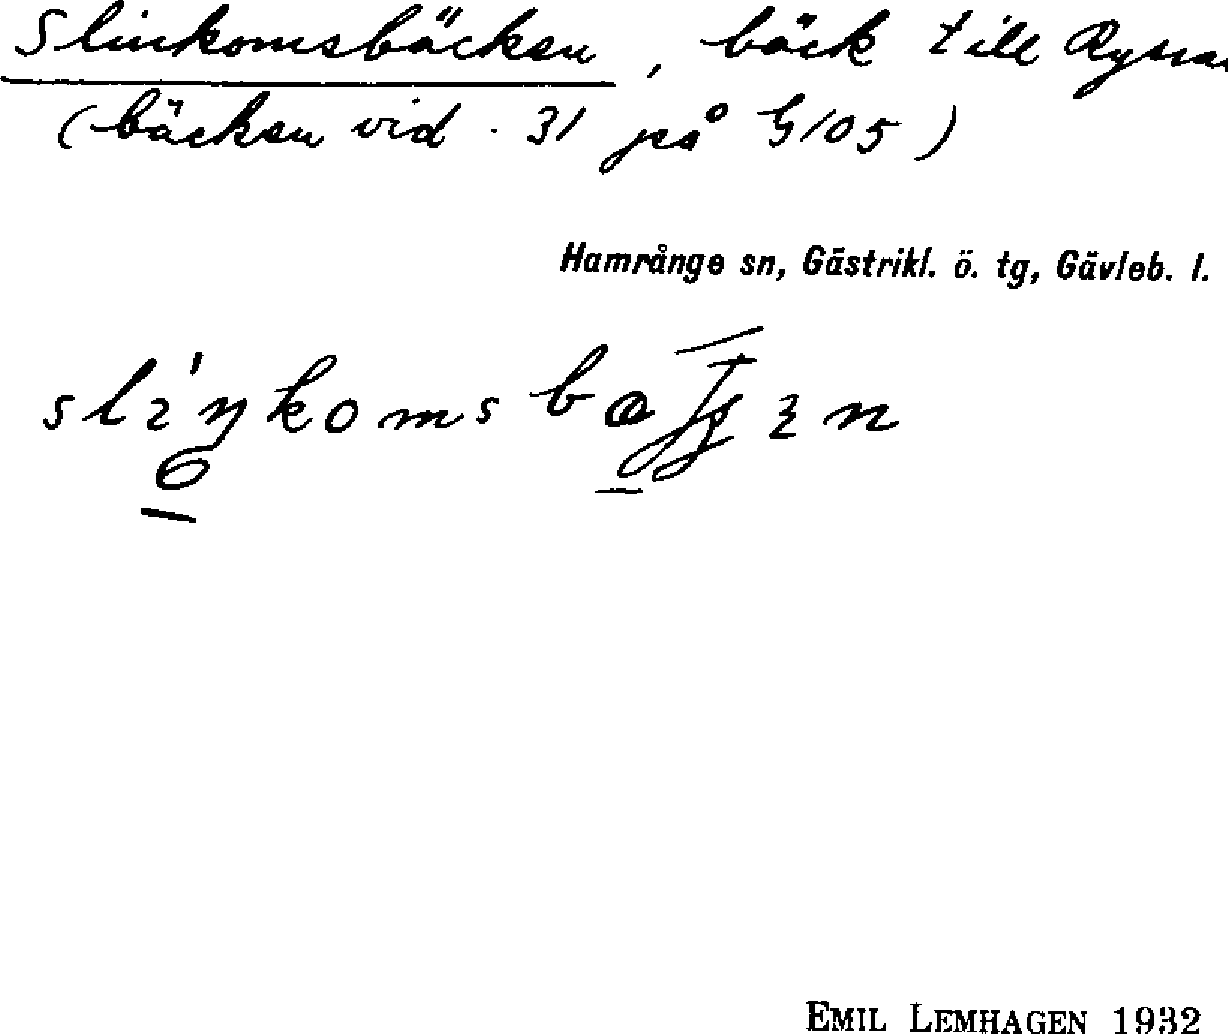 Slinkomsbäcken, bäck till
(bäcken vid · 31 på G105)
Hamrånge sn, Gästrikl. ö. tg, Gävleb. l.
EMIL LEMHAGEN 1932